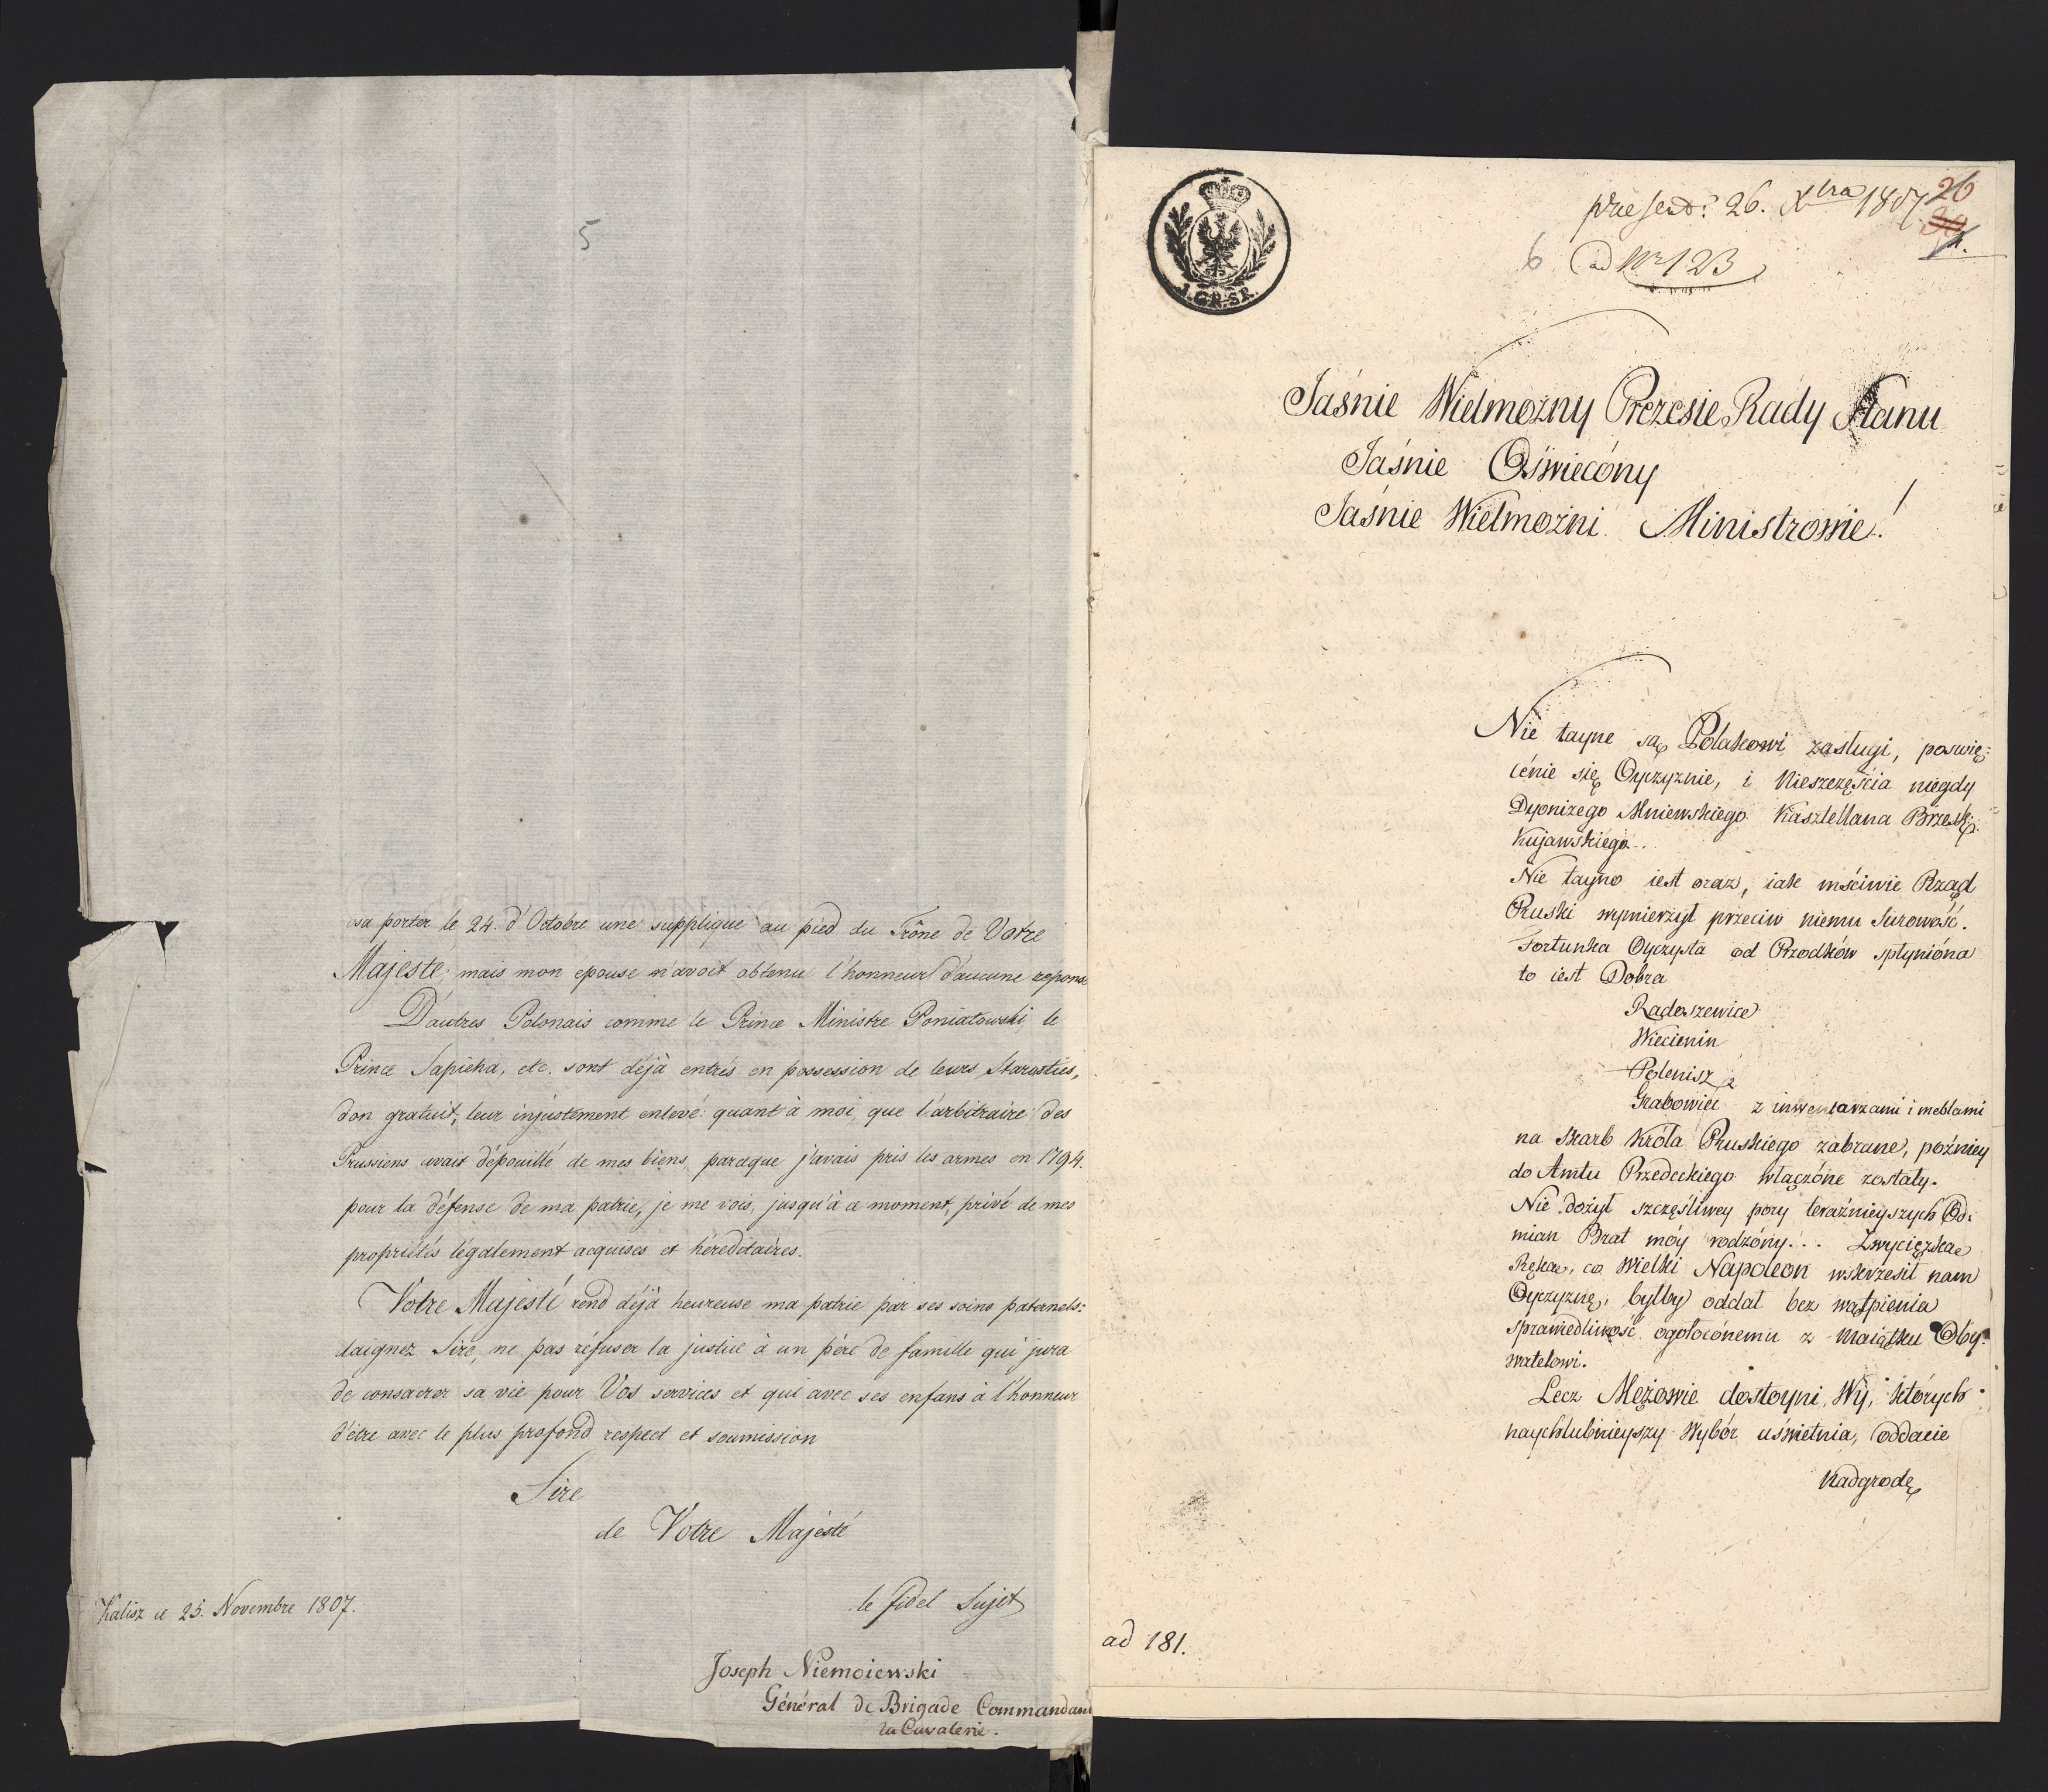 5
osa porter le 24. d'Octobre une supplique au pied du Trône de Votre
Majeste; mais mon épouse n'avoit obtenu l'honneur d'aucune reponse
D'autres Polonais comme le Prince Ministre Poniatowski le
Prince Sapieha, etc. sont déjà entrés en possession de leurs Starosties,
don gratuit, leur injustement enlevé: quant à moi, que l'arbitraire des
Prussiens avait dépouillé de mes biens, parceque j'avais pris les armes en 1794.
pour la défense de ma patrie, je me vois, jusqu'à ce moment, privé de mes
propriétés légalement acquises et héreditaires.
Votre Majesté rend déjà heureuse ma patrie par ses soins paternels:
daignez Sire, ne pas réfuser la justice à un pére de famille qui jura
de consacrer sa vie pour Vos services et qui avec ses enfans à l'honneur
d'être avec le plus profond respect et soumission
Sire
de Votre Majésté
le fidel Sujet
Kalisz ce 25. Novembre 1807.
Joseph Niemoiewski
Général de Brigade Commandant
la Cavalerie.
J.G.P.S.R.
praesent: 26. Xbra 1807
26
6 ad Nr 123
Jaśnie Wielmożny Prezesie Rady Stanu
Jaśnie Oświecóny
Jaśnie Wielmożni Ministrowie!
Nie tayne są Polakowi zasługi, poswię=
cénie się Oyczyznie, i Nieszczęścia niegdy
Dyonizego Mniewskiego Kasztellana Brzesk:
Kujawskiego..
Nie tayno iest oraz, iak mściwie Rząd
Pruski wymierzył przeciw niemu Surowość.
Fortunka Oyczysta od Przodków spłynióna
to iest Dobra
Radoszewice
Wiecienin
Polenisz
Grabowiec z inwentarzami i meblami
na skarb Króla Pruskiego zabrane, poźniey
do Amtu Przedeckiego włączóne zostały.
Nie dożył szczęśliwey pory teraźnieyszych Od:
mian Brat móy rodzóny... Zwycięzka
Ręka, co Wielki Napoleon wskrzesił nam
Oyczyznę, byłby oddał bez wątpienia
sprawiedliwość ogołocónemu z Maiątku Oby=
watelowi.
Lecz Mężowie dostoyni, Wy, których
naychlubnieyszy Wybór uświetnia, oddacie
Nadgrodę
ad 181.